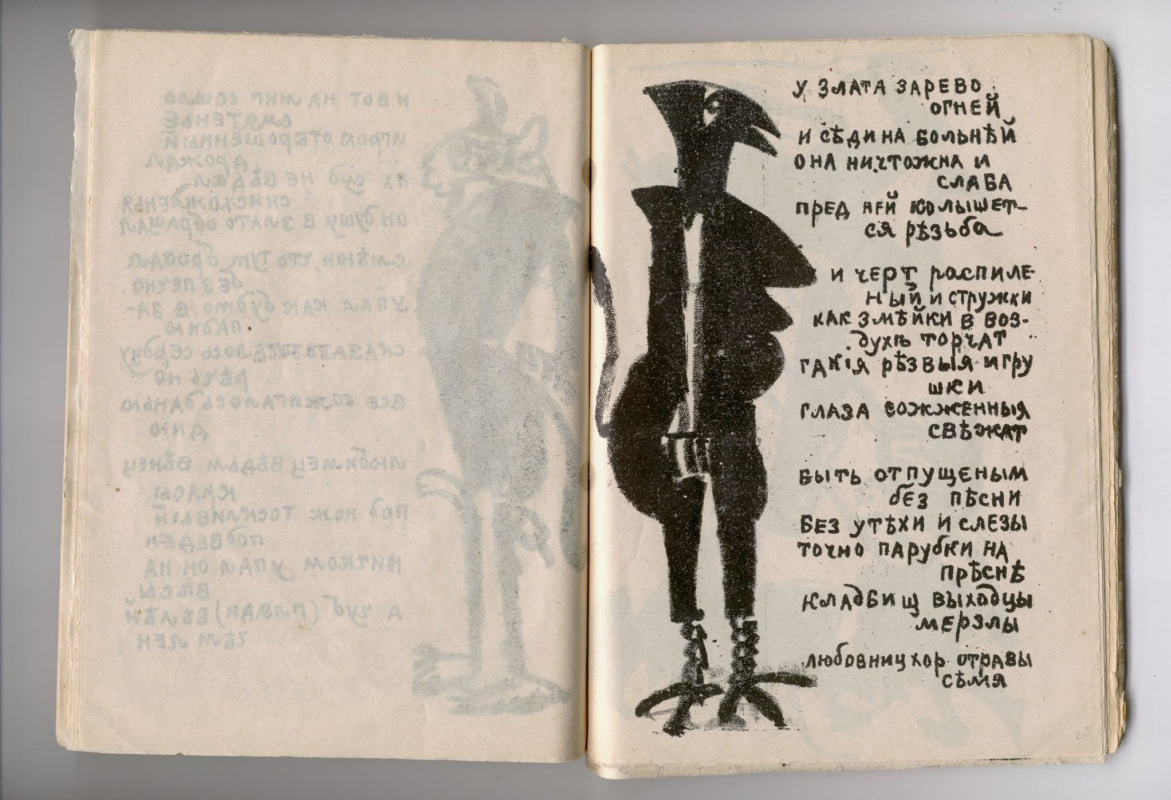 У ЗЛАТА ЗАРЕВО
ОГНЕЙ
И СѢДИНА БОЛЬНѢЙ
ОНА НИЧТОЖНА И
СЛАБА
ПРЕД НЕЙ КОЛЫШЕТ-
СЯ РѢЗЬБА
И ЧЕРТ РАСПИЛЕ-
НЫЙ И СТРУЖКИ
КАК ЗМѢЙКИ В ВОЗ-
ДУХѢ ТОРЧАТ
ТАКІЯ РѢЗВЫЯ ИГРУ
ШКИ
ГЛАЗА СОЖЖЕННЫЯ
СВѢЖАТ
БЫТЬ ОТПУЩЕНЫМ
БЕЗ ПѢСНИ
БЕЗ УТѢХИ И СЛЕЗЫ
ТОЧНО ПАРУБКИ НА
ПРѢСНѢ
КЛАДБИЩ ВЫХОДЦЫ
МЕРЗЛЫ
ЛЮБОВНИЦ ХОР ОТРАВЫ
СѢМЯ